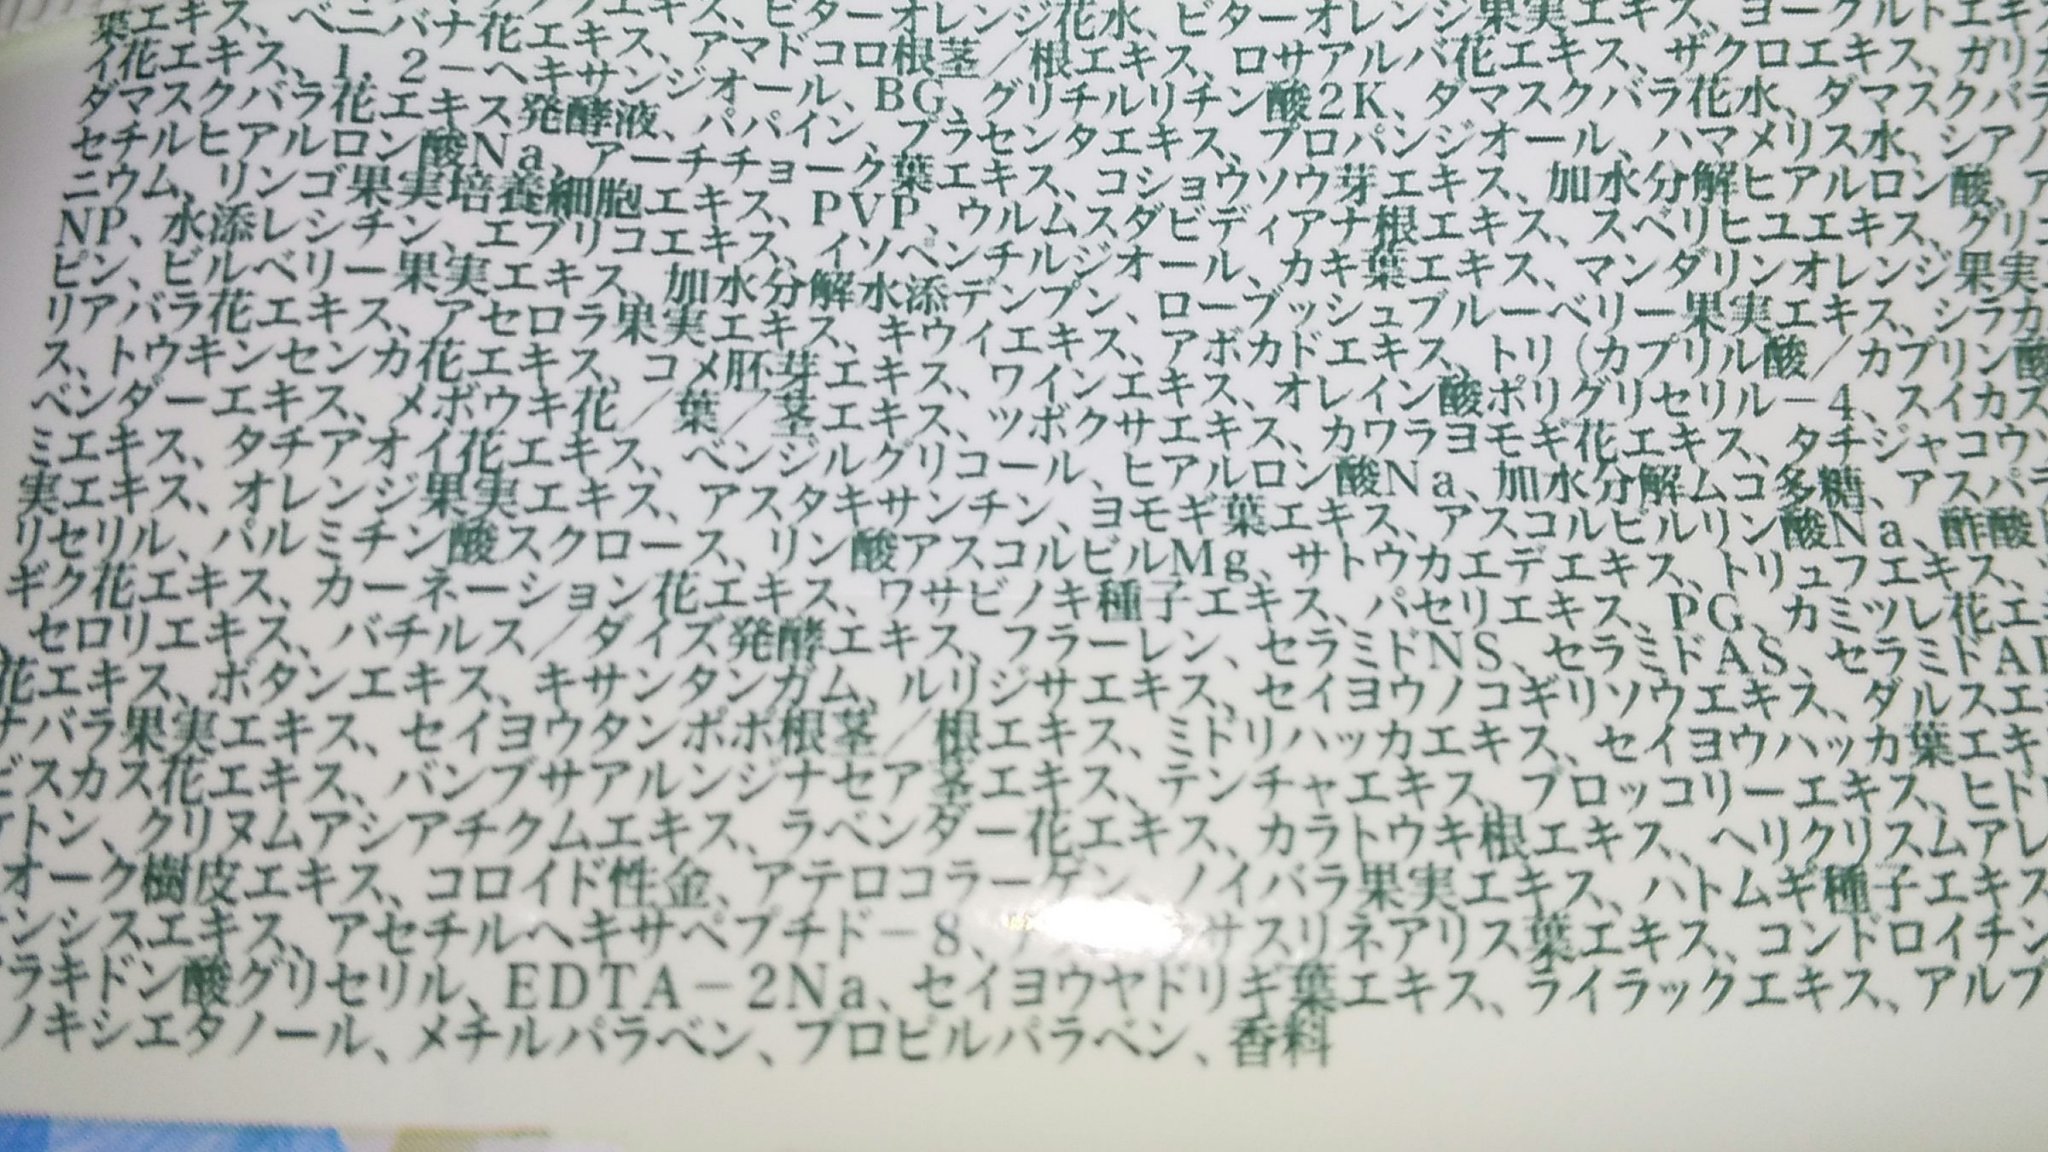 葉エキス、ベニバナ花エキス、ビターオレンジ花水、ビターオレンジ果実エキス、ヨーグルトエキ
イ花エキス、1,2－ヘキサンジオール、アマドコロ根茎／根エキス、ロサアルバ花エキス、ザクロエキス、ガリカ
ダマスクバラ花エキス発酵液、パパイン、BG、グリチルリチン酸2K、ダマスクバラ花水、ダマスクバラ
セチルヒアルロン酸Na、アーチチョーク葉エキス、プラセンタエキス、プロパンジオール、ハマメリス水、シアノ
ニウム、リンゴ果実培養細胞エキス、PVP、ウルムスダビディアナ根エキス、コショウソウ芽エキス、加水分解ヒアルロン酸、ア
NP、水添レシチン、エブリコエキス、イソペンチルジオール、カキ葉エキス、スベリヒユエキス、グリコ
ピン、ビルベリー果実エキス、加水分解水添デンプン、ローブッシュブルーベリー果実エキス、マンダリンオレンジ果実
リアバラ花エキス、アセロラ果実エキス、キウイエキス、アボカドエキス、トリ（カプリル酸／カプリン酸
ス、トウキンセンカ花エキス、コメ胚芽エキス、ワインエキス、オレイン酸ポリグリセリル－4、スイカズ
ベンダーエキス、メボウキ花／葉／茎エキス、ツボクサエキス、カワラヨモギ花エキス、タチジャコウソ
ミエキス、タチアオイ花エキス、ベンジルグリコール、ヒアルロン酸Na、加水分解ムコ多糖、アスパラ
実エキス、オレンジ果実エキス、アスタキサンチン、ヨモギ葉エキス、アスコルビルリン酸Na、酢酸ト
リセリル、パルミチン酸スクロース、リン酸アスコルビルMg、サトウカエデエキス、トリュフエキス、
ギク花エキス、カーネーション花エキス、ワサビノキ種子エキス、パセリエキス、PG、カミツレ花エキ
セロリエキス、バチルス／ダイズ発酵エキス、フラーレン、セラミドNS、セラミドAS、セラミドAP
花エキス、ボタンエキス、キサンタンガム、ルリジサエキス、セイヨウノコギリソウエキス、ダルスエ
ナバラ果実エキス、セイヨウタンポポ根茎／根エキス、ミドリハッカエキス、セイヨウハッカ葉エキ
ビスカス花エキス、バンブサアルンジナセア茎エキス、テンチャエキス、ブロッコリーエキス、ヒド
ケトン、クリヌムアシアチクムエキス、ラベンダー花エキス、カラトウキ根エキス、ヘリクリスムアレ
オーク樹皮エキス、コロイド性金、アテロコラーゲン、ノイバラ果実エキス、ハトムギ種子エキス
ンシスエキス、アセチルヘキサペプチド－8、サスリネアリス葉エキス、コンドロイチン
ラキドン酸グリセリル、EDTA－2Na、セイヨウヤドリギ葉エキス、ライラックエキス、アルブ
ノキシエタノール、メチルパラベン、プロピルパラベン、香料